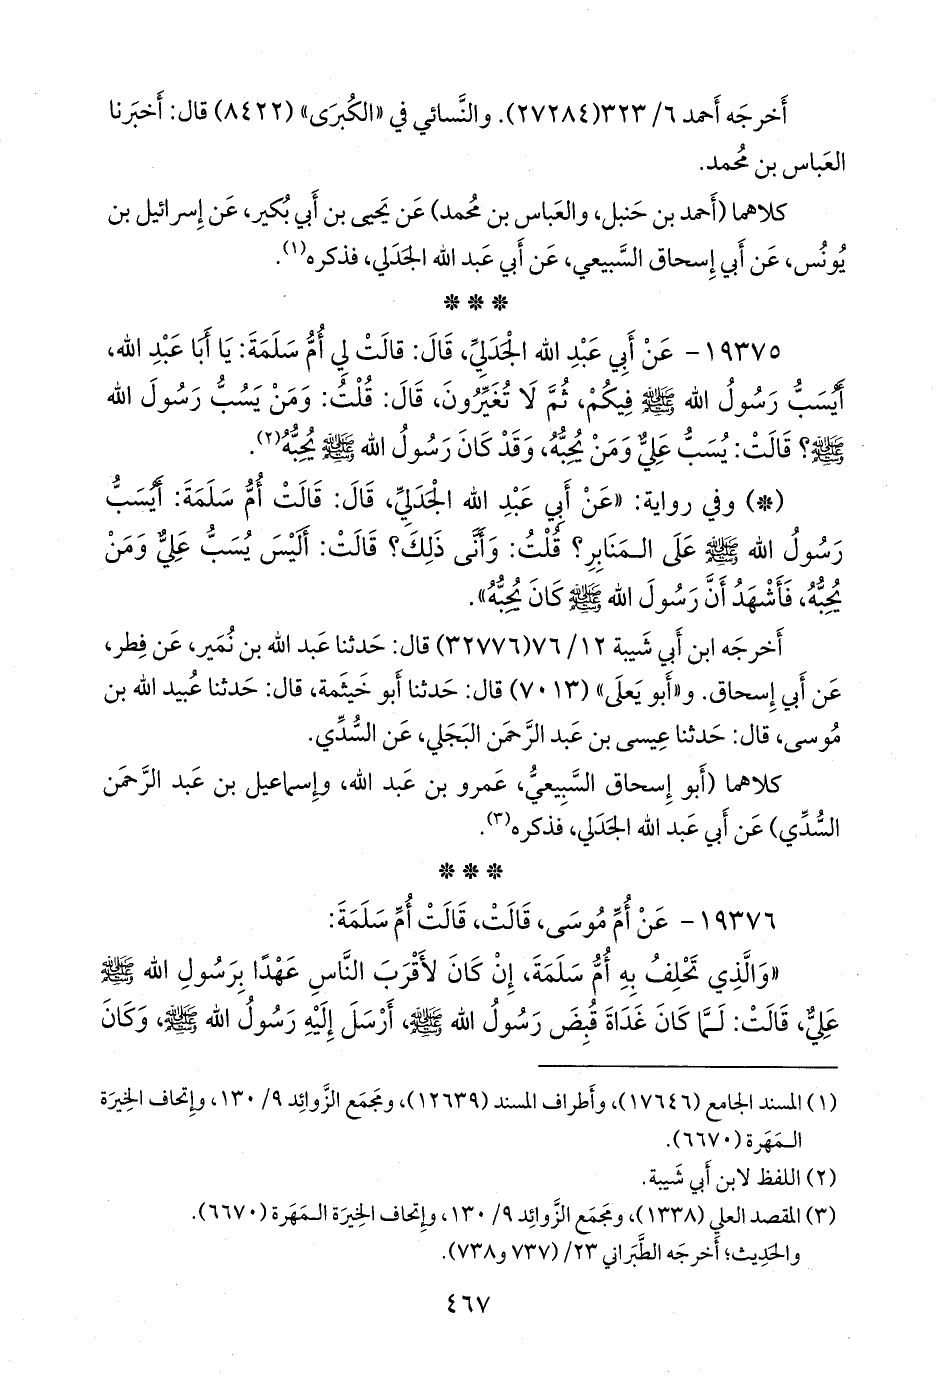 أَخرجَه أَحمد ٦/ ٣٢٣(٢٧٢٨٤). والنَّسائي في «الكُبرَى» (٨٤٢٢) قال: أَخبَرنا
العَباس بن مُحمد.
كلاهما (أَحمد بن حَنبل، والعَباس بن مُحمد) عَن يَحيى بن أَبي بُكير، عَن إِسرائيل بن
يُونُس، عَن أَبي إِسحاق السَّبيعي، عَن أَبي عَبد الله الجَدَلي، فذكره(١).
* * *
١٩٣٧٥- عَنْ أَبِي عَبْدِ الله الْجَدَلِيِّ، قَالَ: قالَتْ لِي أُمُّ سَلَمَةَ: يَا أَبَا عَبْدِ الله،
أَيُسَبُّ رَسُولُ الله ﷺ فِيكُمْ، ثُمَّ لَا تُغَيِّرُونَ، قَالَ: قُلْتُ: وَمَنْ يَسُبُّ رَسُولَ الله
ﷺ؟ قَالَتْ: يُسَبُّ عَلِيٌّ وَمَنْ يُحِبُّهُ، وَقَدْ كَانَ رَسُولُ الله ﷺ يُحِبُّهُ(٢).
(*) وفي رواية: «عَنْ أَبِي عَبْدِ الله الْجَدَلِيِّ، قَالَ: قَالَتْ أُمُّ سَلَمَةَ: أَيُسَبُّ
رَسُولُ الله ﷺ عَلَى الـمَنَابِرِ؟ قُلْتُ: وَأَنَّى ذَلِكَ؟ قَالَتْ: أَلَيْسَ يُسَبُّ عَلِيٌّ وَمَنْ
يُحِبُّهُ، فَأَشْهَدُ أَنَّ رَسُولَ الله ﷺ كَانَ يُحِبُّهُ».
أَخرجَه ابن أَبي شَيبة ١٢/ ٧٦(٣٢٧٧٦) قال: حَدثنا عَبد الله بن نُمَير، عَن فِطر،
عَن أَبي إِسحاق. و«أَبو يَعلَى» (٧٠١٣) قال: حَدثنا أَبو خَيثَمة، قال: حَدثنا عُبيد الله بن
مُوسى، قال: حَدثنا عِيسى بن عَبد الرَّحمَن البَجَلي، عَن السُّدِّي.
كلاهما (أَبو إِسحاق السَّبِيعيُّ، عَمرو بن عَبد الله، وإِسماعيل بن عَبد الرَّحمَن
السُّدِّي) عَن أَبي عَبد الله الجَدَلي، فذكره(٣).
* * *
١٩٣٧٦- عَنْ أُمِّ مُوسَى، قَالَتْ، قَالَتْ أُمِّ سَلَمَةَ:
«وَالَّذِي تَحْلِفُ بِهِ أُمُّ سَلَمَةَ، إِنْ كَانَ لأَقْرَبَ النَّاسِ عَهْدًا بِرَسُولِ الله ﷺ
عَلِيٌّ، قَالَتْ: لَـمَّا كَانَ غَدَاةَ قُبِضَ رَسُولُ الله ﷺ، أَرْسَلَ إِلَيْهِ رَسُولُ الله ﷺ، وَكَانَ
(١) المسند الجامع (١٧٦٤٦)، وأَطراف المسند (١٢٦٣٩)، ومَجمَع الزَّوائِد ٩/ ١٣٠، وإِتحاف الخِيرَة
الـمَهَرة (٦٦٧٠).
(٢) اللفظ لابن أَبي شَيبة.
(٣) المقصد العلي (١٣٣٨)، ومَجمَع الزَّوائِد ٩/ ١٣٠، وإِتحاف الخِيرَة الـمَهَرة (٦٦٧٠).
والحَدِيث؛ أَخرجَه الطَّبَراني ٢٣/ (٧٣٧ و٧٣٨).
٤٦٧